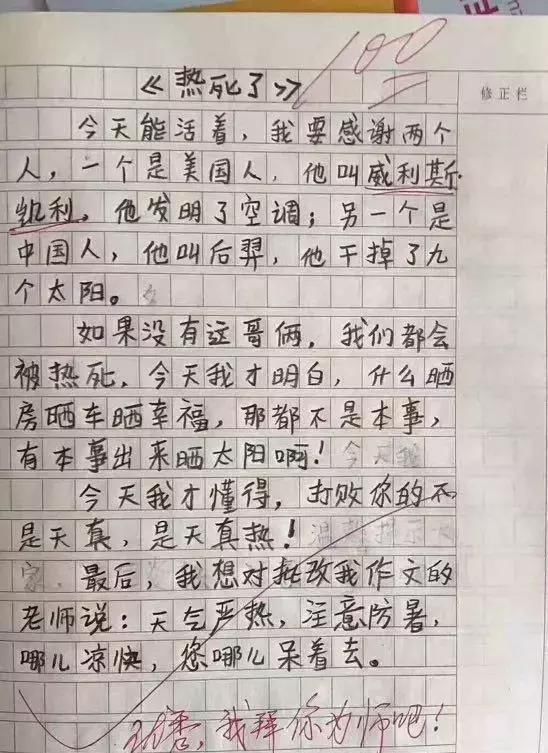 100
《热死了》
修正栏
今天能活着，我要感谢两个
人，一个是美国人，他叫威利斯
凯利，他发明了空调；另一个是
中国人，他叫后羿，他干掉了九
个太阳。
如果没有这哥俩，我们都会
被热死，今天我才明白，什么晒
房晒车晒幸福，那都不是本事，
有本事出来晒太阳啊！今天我
今天我才懂得，打败你的不
是天真，是天真热！
最后，我想对批改我作文的
老师说：天气严热，注意防暑，
哪儿凉快，您哪儿呆着去。
优秀，我拜你为师吧！